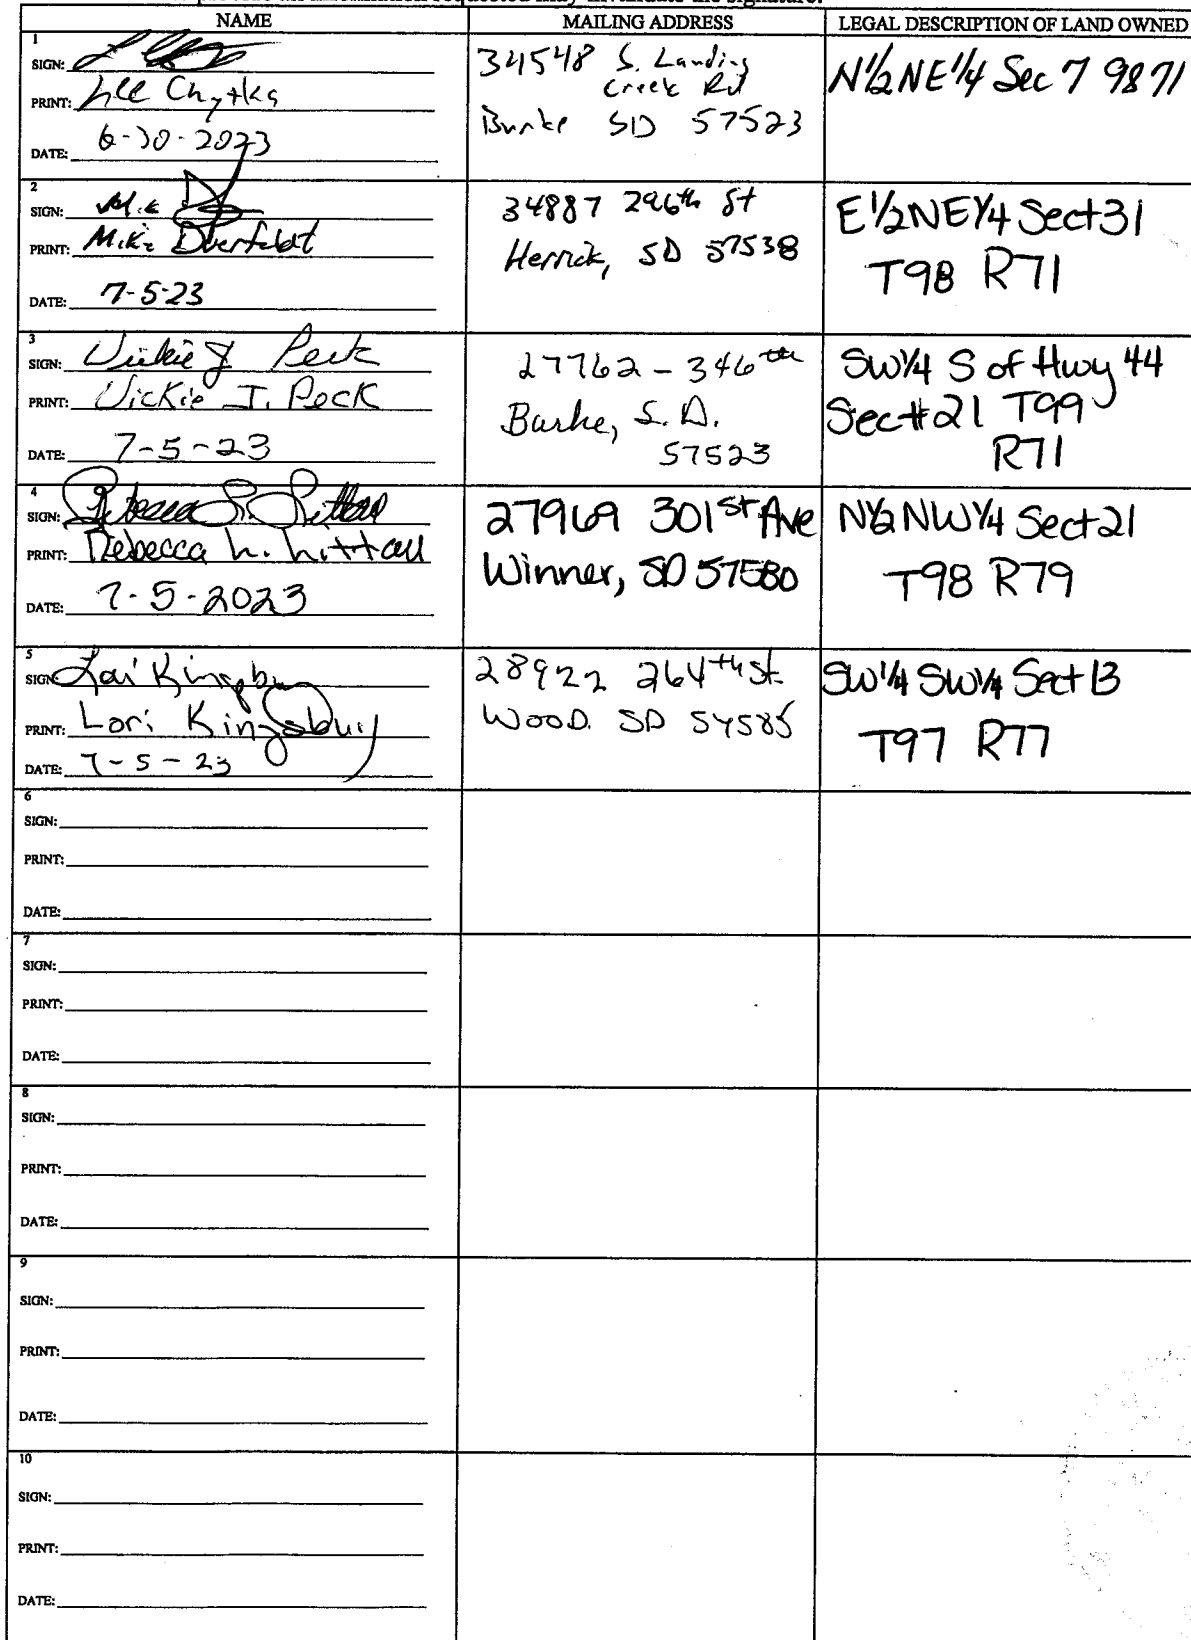 NAME MAILING ADDRESS LEGAL DESCRIPTION OF LAND OWNED
1
SIGN:
PRINT: Lee Chytka
DATE: 6-30-2023
34548 S. Landing
Creek Rd
Burke SD 57523
N1/2 NE1/4 Sec 7 9871
2
SIGN: Mike
PRINT: Mike Oberfeldt
DATE: 7-5-23
34887 296th St
Herrick, SD 57538
E1/2NE1/4 Sect 31
T98 R71
3
SIGN: Vickie J Peck
PRINT: Vickie J. Peck
DATE: 7-5-23
27762 - 346th
Burke, S.D.
57523
SW1/4 S of Hwy 44
Sect#21 T99
R71
4
SIGN: Rebecca L. Littau
PRINT: Rebecca L. Littau
DATE: 7-5-2023
27969 301st Ave
Winner, SD 57580
N1/2 NW1/4 Sect 21
T98 R79
5
SIGN: Lori Kingsbury
PRINT: Lori Kingsbury
DATE: 7-5-23
28922 264th St.
WOOD. SD 57585
SW1/4 SW1/4 Sect 13
T97 R77
6
SIGN:
PRINT:
DATE:
7
SIGN:
PRINT:
DATE:
8
SIGN:
PRINT:
DATE:
9
SIGN:
PRINT:
DATE:
10
SIGN:
PRINT:
DATE: